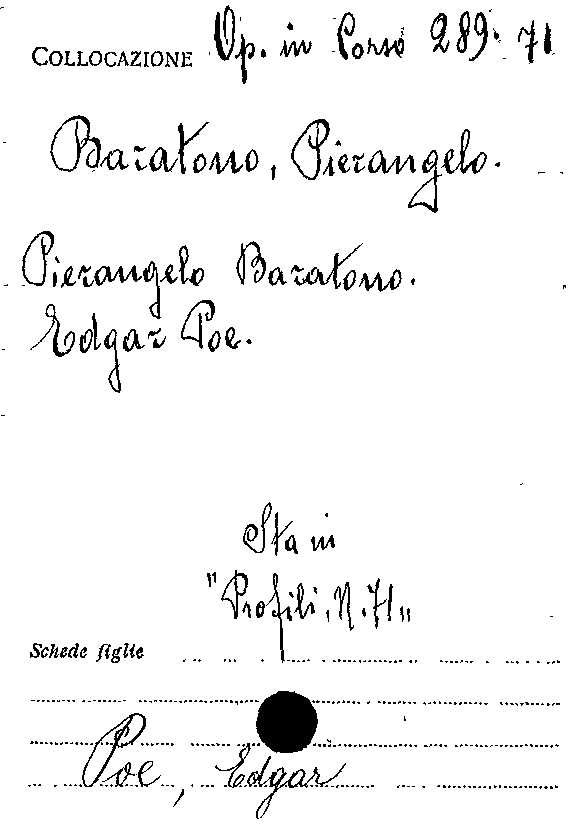 COLLOCAZIONE Op. in Corso 289. 71
Baratono, Pierangelo.
Pierangelo Baratono.
Edgar Poe.
Sta in
"Profili, N. 71"
Schede figlie
Poe, Edgar